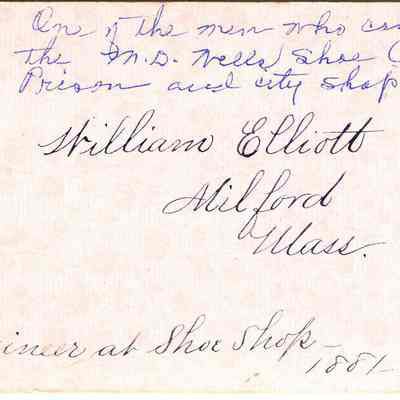 One of the men who
the M.D. Wells Shoe
Prison and city shop
William Elliott
Milford
Mass.
ineer at Shoe Shop -
1881-